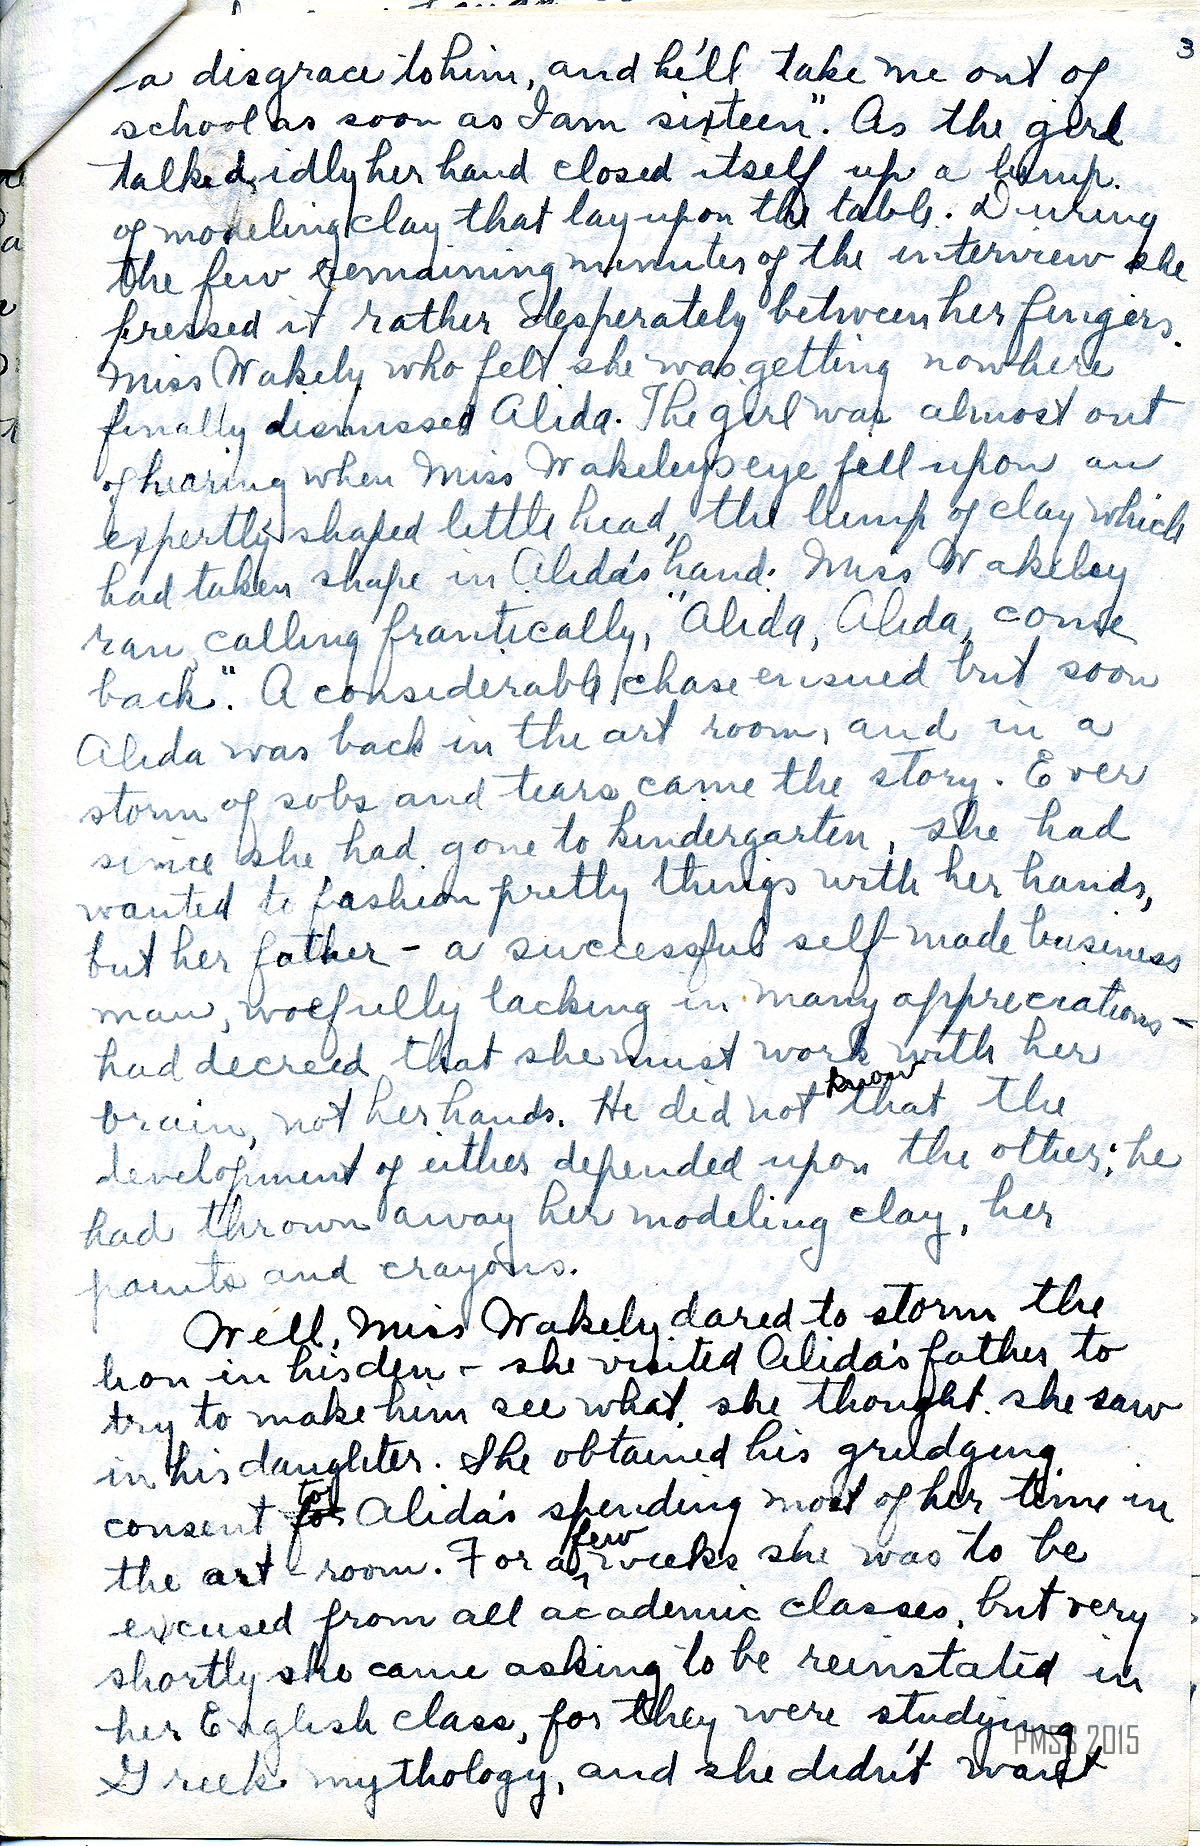 3
a disgrace to him, and he'll take me out of
school as soon as I am sixteen". As the girl
talked, idly her hand closed itself up a lump
of modeling clay that lay upon the table. During
the few remaining minutes of the interview she
pressed it rather desperately between her fingers.
Miss Wakely who felt she was getting nowhere
finally dismissed Alida. The girl was almost out
of hearing when Miss Wakeley's eye fell upon an
expertly shaped little head, the lump of clay which
had taken shape in Alida's hand. Miss Wakeley
ran calling frantically, "Alida, Alida, come
back". A considerable chase ensued but soon
Alida was back in the art room, and in a
storm of sobs and tears came the story. Ever
since she had gone to kindergarten, she had
wanted to fashion pretty things with her hands,
but her father - a successful self-made business
man, woefully lacking in many appreciations -
had decreed that she must work with her
brain, not her hands. He did not know that the
development of either depended upon the other; he
had thrown away her modeling clay, her
paints and crayons.
Well, Miss Wakely dared to storm the
lion in his den - she visited Alida's father to
try to make him see what she thought she saw
in his daughter. She obtained his grudging
consent to Alida's spending most of her time in
the art room. For a few weeks she was to be
excused from all academic classes, but very
shortly she came asking to be reinstated in
her English class, for they were studying
Greek mythology, and she didn't want
PMSS 2015